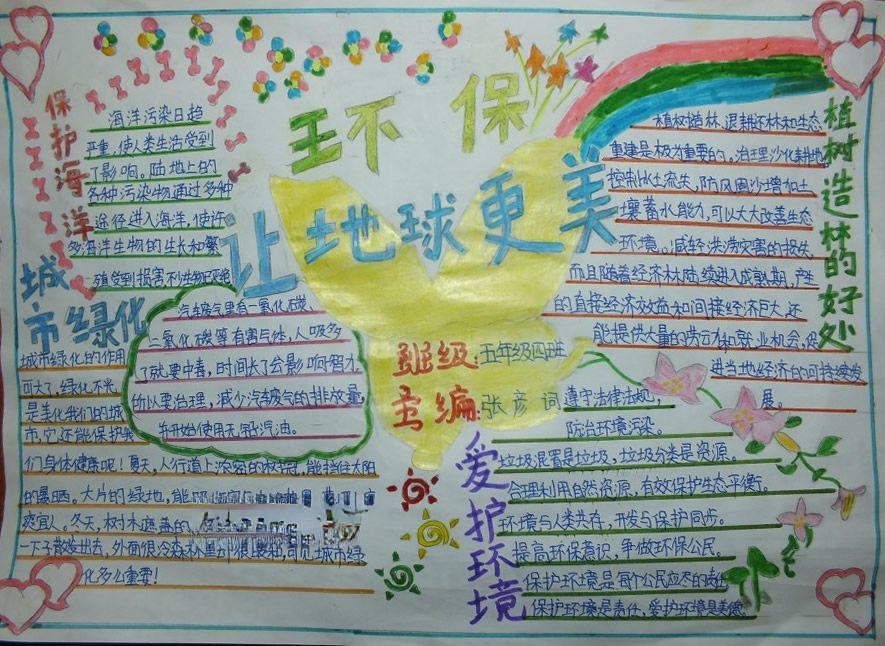 王不 保
让地球更美
保护海洋
海洋污染日趋
严重,使人类生活受到
了影响。陆地上的
各种污染物通过多种
途径进入海洋,使许
多海洋生物的生长和繁
殖受到损害不少生物已灭绝
城市绿化
城市绿化的作用
可大了,绿化不光
是美化我们的城
市,它还能保护我
们身体健康呢!夏天,人行道上浓密的树冠,能挡住太阳
的暴晒。大片的绿地,能
爽宜人。冬天,树木遮盖的
一下子散发出去,外面很冷森林里却很暖和,可见城市绿
化多么重要!
汽车废气里有一氧化碳、
二氧化碳等有害气体,人吸多
了就要中毒,时间长了会影响智力
所以要治理,减少汽车废气的排放量,
并开始使用无铅汽油。
班级:五年级四班
主编:张彦词
植树造林的好处
植树造林,退耕还林和生态
重建是极为重要的。治理沙化耕地
控制水土流失,防风固沙增加土
壤蓄水能力,可以大大改善生态
环境。减轻洪涝灾害的损失,
而且随着经济林陆续进入成熟期,产
的直接经济效益和间接经济巨大,还
能提供大量的劳动和就业机会,促
进当地经济的可持续发
展。
爱护环境
遵守法律法规,
防治环境污染。
垃圾混置是垃圾,垃圾分类是资源。
合理利用自然资源,有效保护生态平衡。
环境与人类共存,开发与保护同步。
提高环保意识,争做环保公民。
保护环境是每个公民应尽的责任
保护环境是责任,爱护环境是美德。